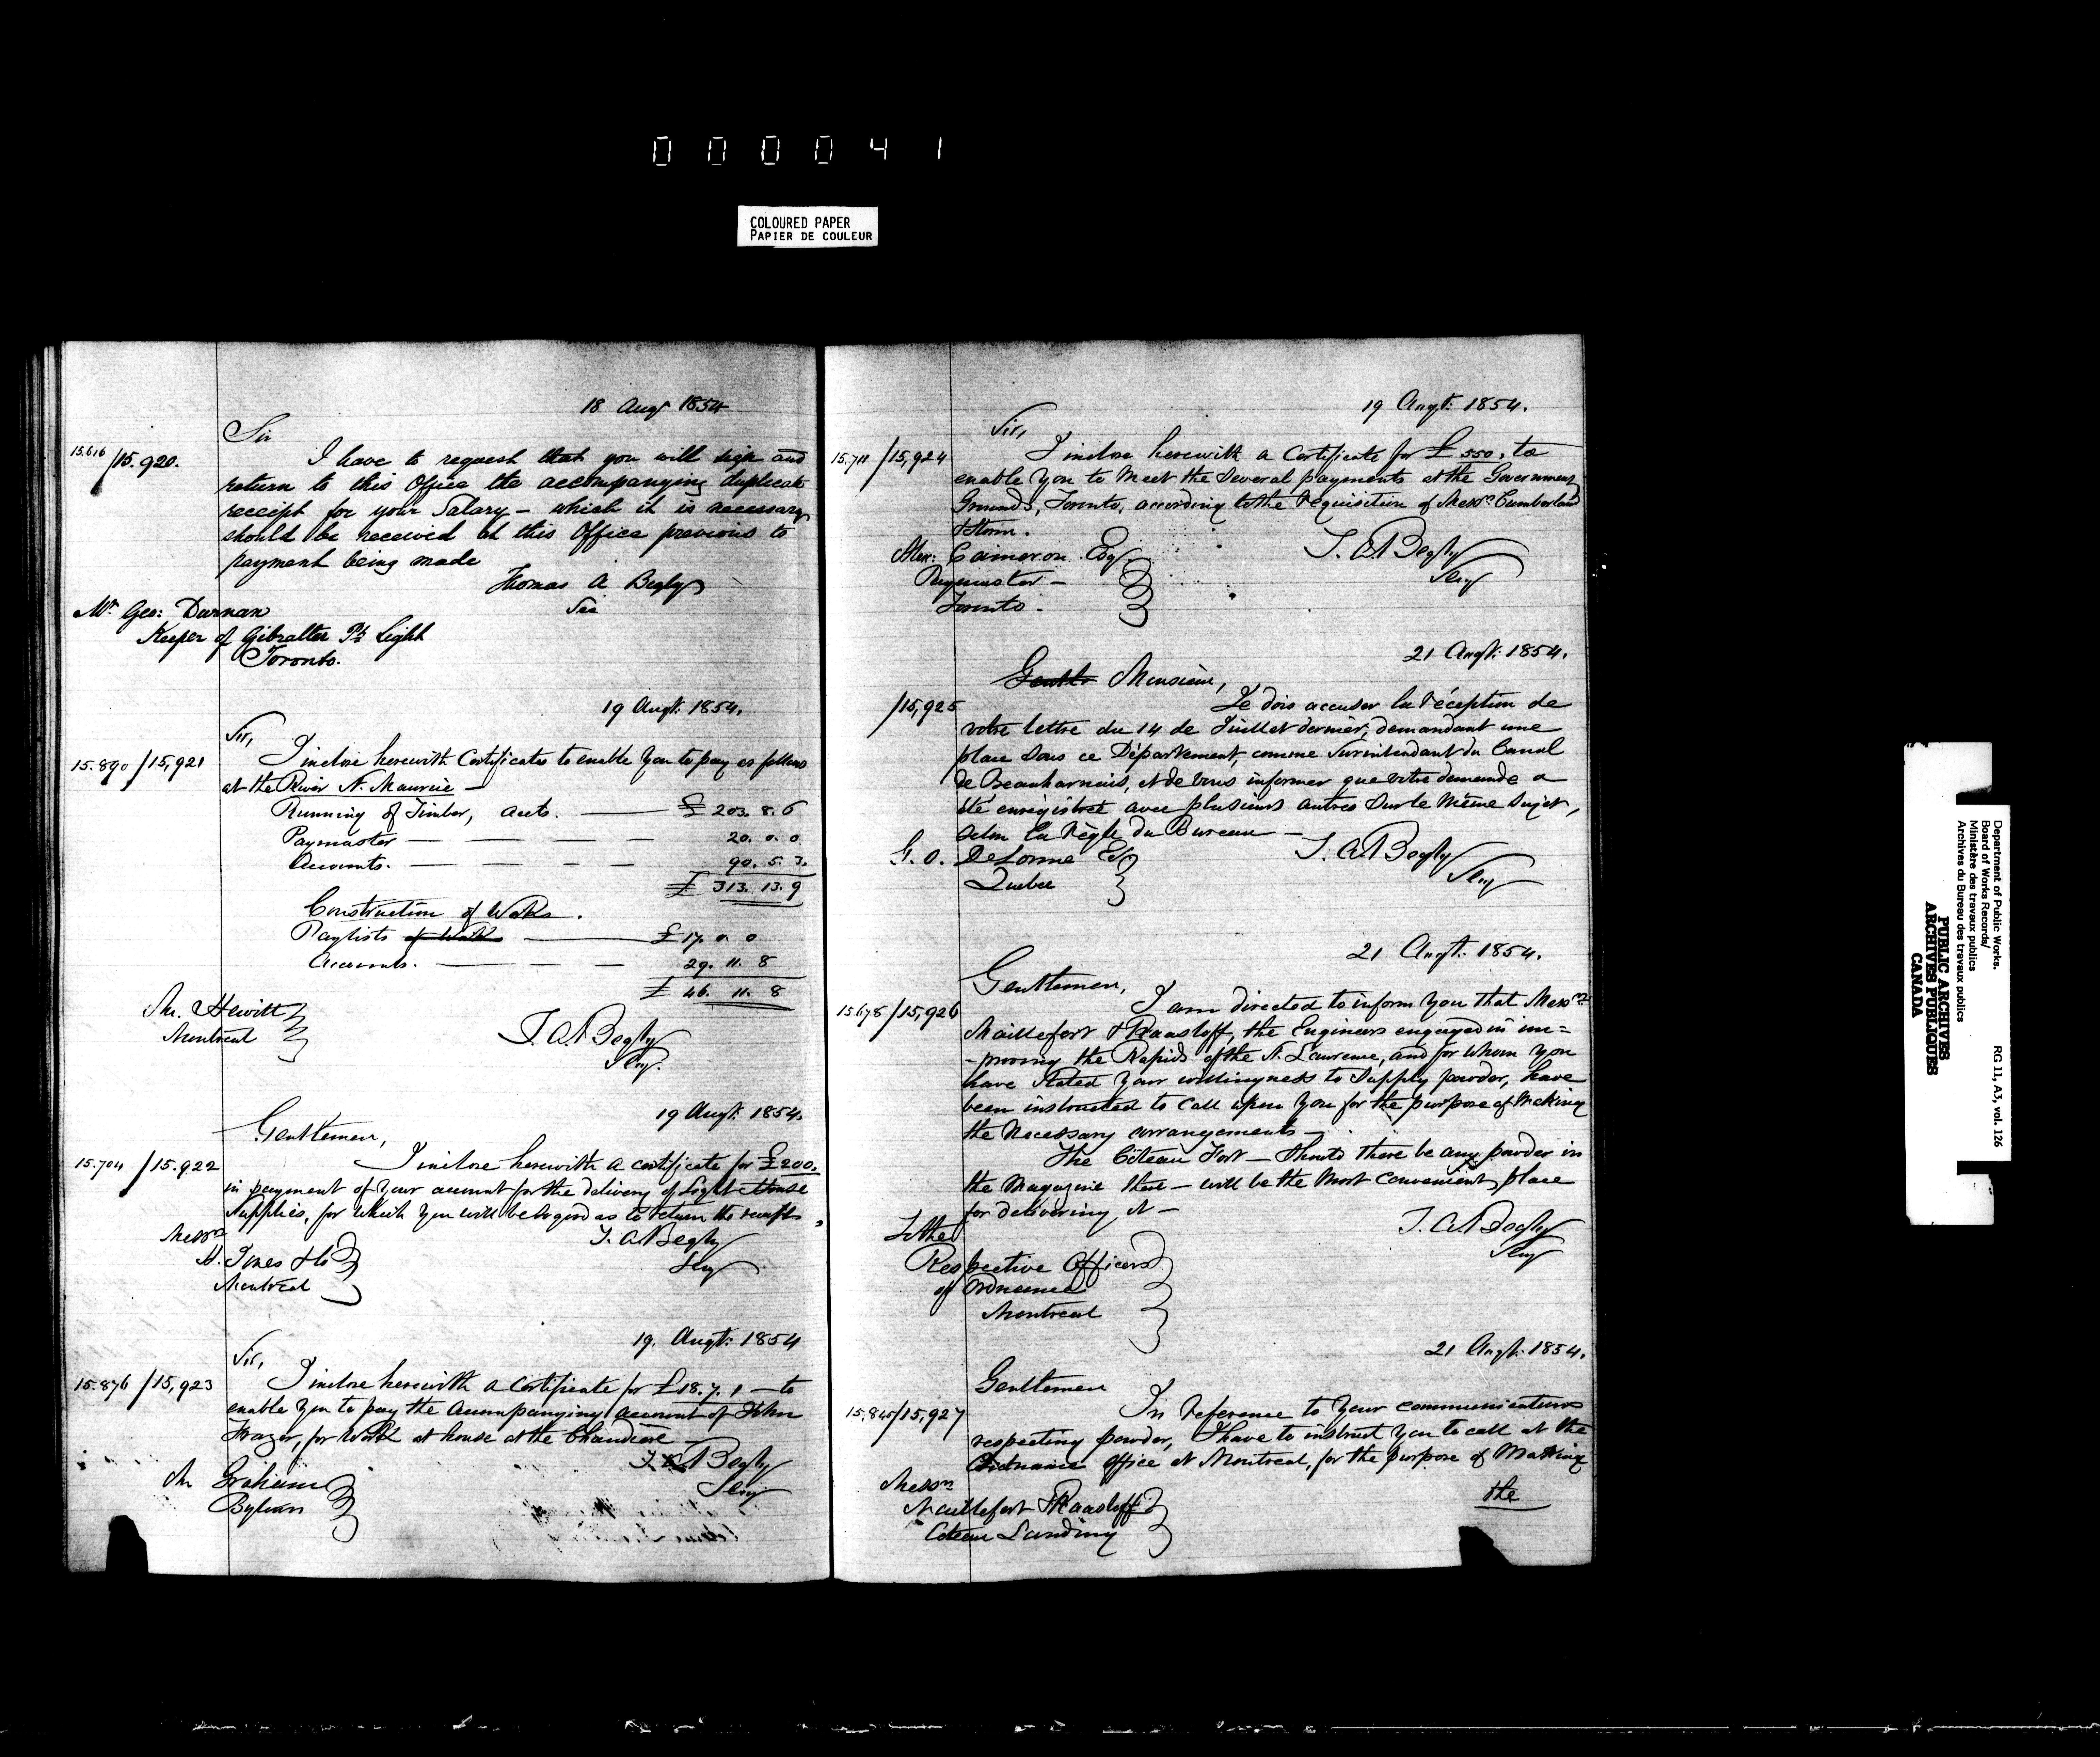 000041
COLOURED PAPER
PAPIER DE COULEUR
18 Augt 1854
Sir
15.616/15.920.
I have to request that you will sign and
return to this Office the accompanying duplicate
receipt for your Salary – which it is necessary
should be received at this Office previous to
payment being made
Thomas A Begly
Sec
Mr. Geo: Durnan
Keeper of Gibralter Pt Light
Toronto.
19 Augt: 1854.
Sir,
15.890/15,921
I inclose herewith Certificates to enable You to pay as follows
at the River St. Maurice –
Running of Timber, accts. £ 203. 8. 6
Paymaster 20. 0. 0
Accounts. 90. 5. 3.
£ 313. 13. 9
Construction of Works.
Paylists of Works £ 17. 0. 0
Accounts. 29. 11. 8
£ 46. 11. 8
Mr. Hewitt
Montreal
T. A. Begly
Secy.
19 Augt: 1854.
Gentlemen,
15.704/15.922
I inclose herewith a certificate for £200.
in payment of Your account for the delivery of Light House
Supplies, for which You will be so good as to return the receipts.
T. A. Begly
Secy
Messrs
H. Jones & Co
Montreal
19. Augt: 1854
Sir,
15.876/15,923
I inclose herewith a Certificate for £18.7.1 – to
enable You to pay the Accompanying account of John
Frazer, for Work at house at the Chaudiere –
T. A. Begly
Secy
Mr Graham
Bytown
19 Augt: 1854.
Sir,
15.711/15,924
I inclose herewith a Certificate for £ 550. to
enable You to Meet the Several payments at the Government
Grounds, Toronto, according to the Requisition of Messrs Cumberland
& Storm.
T. A. Begly
Secy
Alex: Cameron Esq
Paymaster –
Toronto.
21 Augt: 1854.
Monsieur,
/15,925
Je dois accuser la réception de
votre lettre du 14 de Juillet dernier, demandant une
place sous ce Département, comme Surintendant du Canal
de Beauharnois, et de vous informer que votre demande a
été enrégistreé avec plusieurs autres sur le même sujet,
selon la Règle du Bureau –
T. A. Begly
Secy
G. O. DeLorme Esq
Quebec
21 Augt: 1854.
Gentlemen,
15.678/15,926
I am directed to inform You that Messrs
Maillefert & Raasloff, the Engineers engaged in im=
-proving the Rapids of the St. Lawrence, and for whom You
have Stated Your willingness to Supply powder, have
been instructed to Call upon You for the purpose of Making
the Necessary arrangements –
The Côteau Fort – Should there be any powder in
the Magazine there – will be the Most Convenient place
for delivering it –
T. A. Begly
Secy
To the
Respective Officers
of Ordnance
Montreal
21 Augt: 1854.
Gentlemen
15,845/15,927
In reference to Your communications
respecting powder, I have to instruct You to call at the
Ordnance Office at Montreal, for the purpose of Making
the
Messrs
Maillefert & Raasloff
Coteau Landing
Department of Public Works.
Board of Works Records/
Ministère des travaux publics
Archives du Bureau des travaux publics
RG 11, A3, vol. 126
PUBLIC ARCHIVES
ARCHIVES PUBLIQUES
CANADA